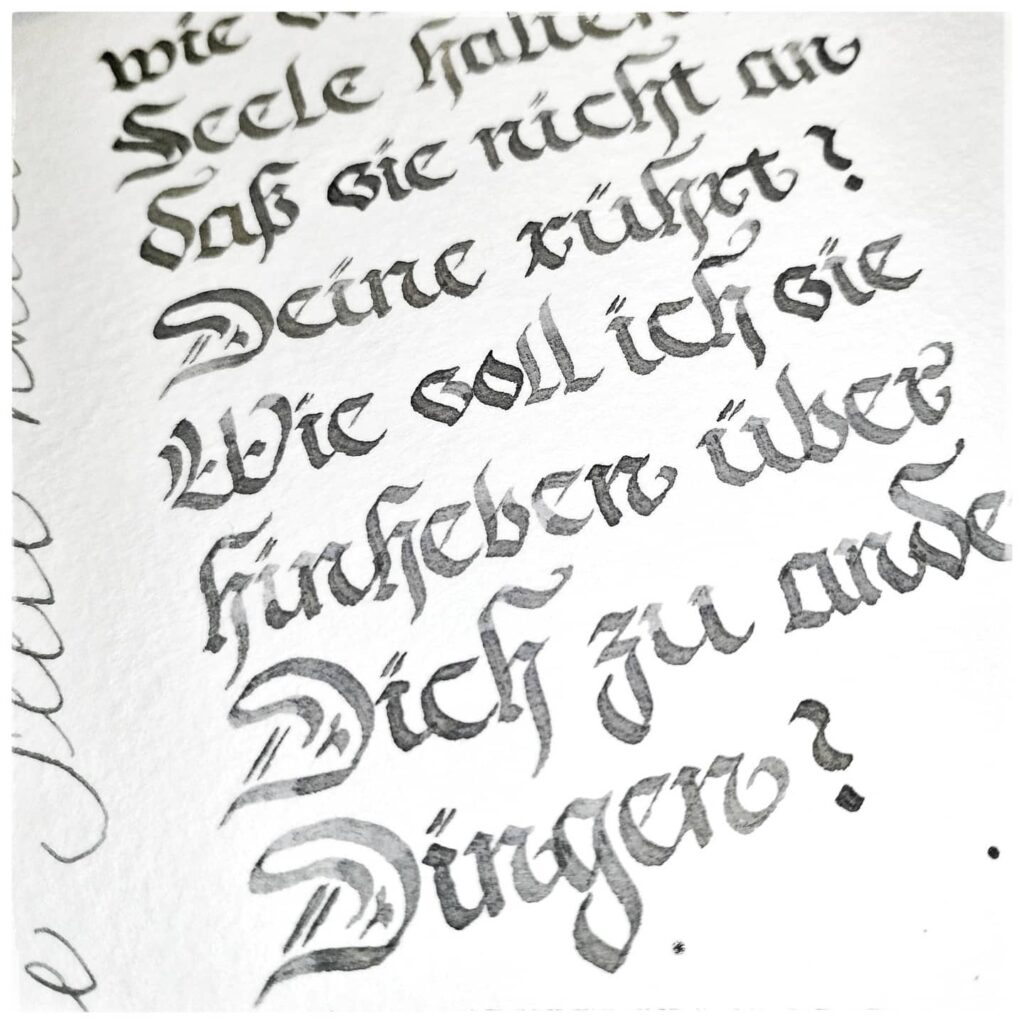 wie
Seele halten
daß sie nicht an
Deine rührt?
Wie soll ich sie
hinheben über
Dich zu ande
Dingen?